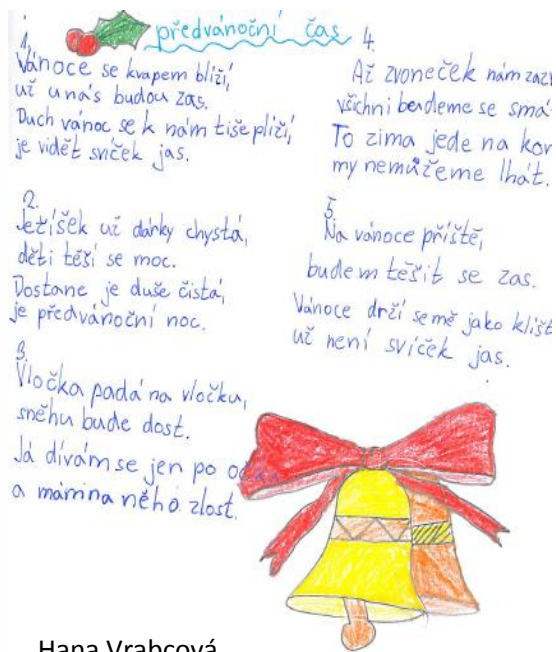 předvánoční čas
1.
Vánoce se kvapem blíží,
už u nás budou zas.
Duch vánoc se k nám tiše plíží,
je vidět svíček jas.
2.
Ježíšek už dárky chystá,
děti těší se moc.
Dostane je duše čistá,
je předvánoční noc.
3.
Vločka padá na vločku,
sněhu bude dost.
Já dívám se jen po
a mámina něho zlost.
4.
Až zvoneček nám
všichni budeme se
To zima jede na
my nemůžeme lhát.
5.
Na vánoce příště,
budem těšit se zas.
Vánoce drží se mě jako
už není svíček jas.
Hana Vrabcová